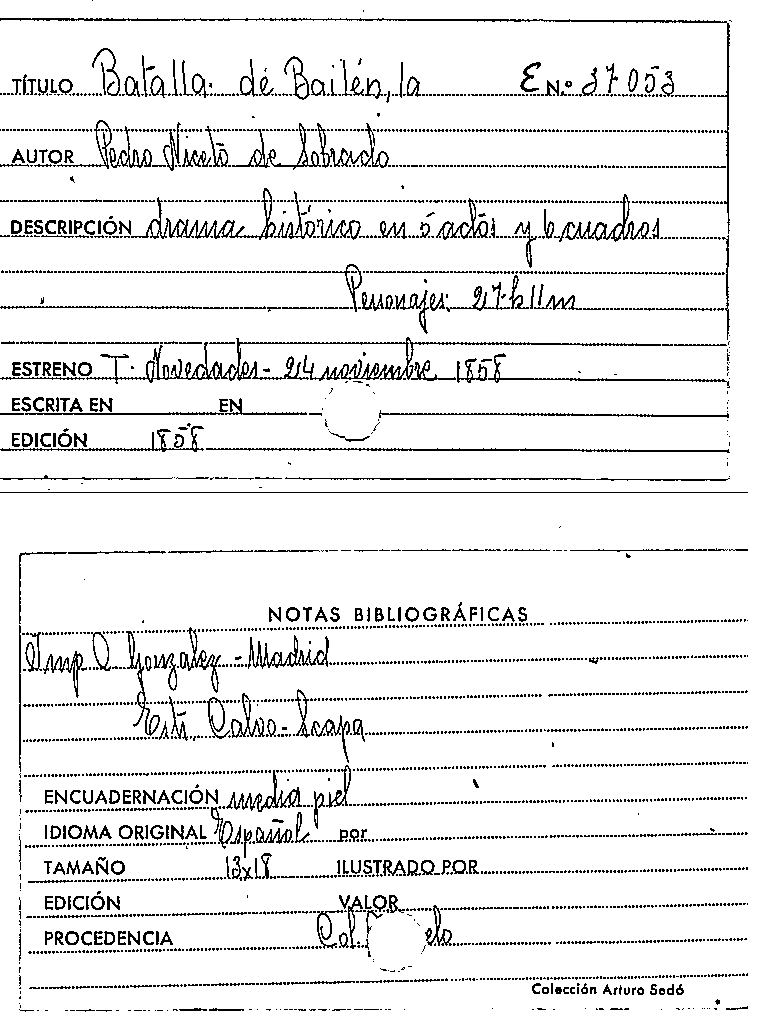 TÍTULO Batalla de Bailén, la E N.º 37053
AUTOR Pedro Niceto de Sobrado
DESCRIPCIÓN drama histórico en 5 actos y 6 cuadros
Personajes: 27 h 11 m
ESTRENO T. Novedades - 24 noviembre 1858
ESCRITA EN EN
EDICIÓN 1858
NOTAS BIBLIOGRÁFICAS
Imp C Gonzalez - Madrid
Estr. Calvo-Scapa
ENCUADERNACIÓN media piel
IDIOMA ORIGINAL Español por
TAMAÑO 13x18 ILUSTRADO POR
EDICIÓN VALOR
PROCEDENCIA Col.
Colección Arturo Sedó